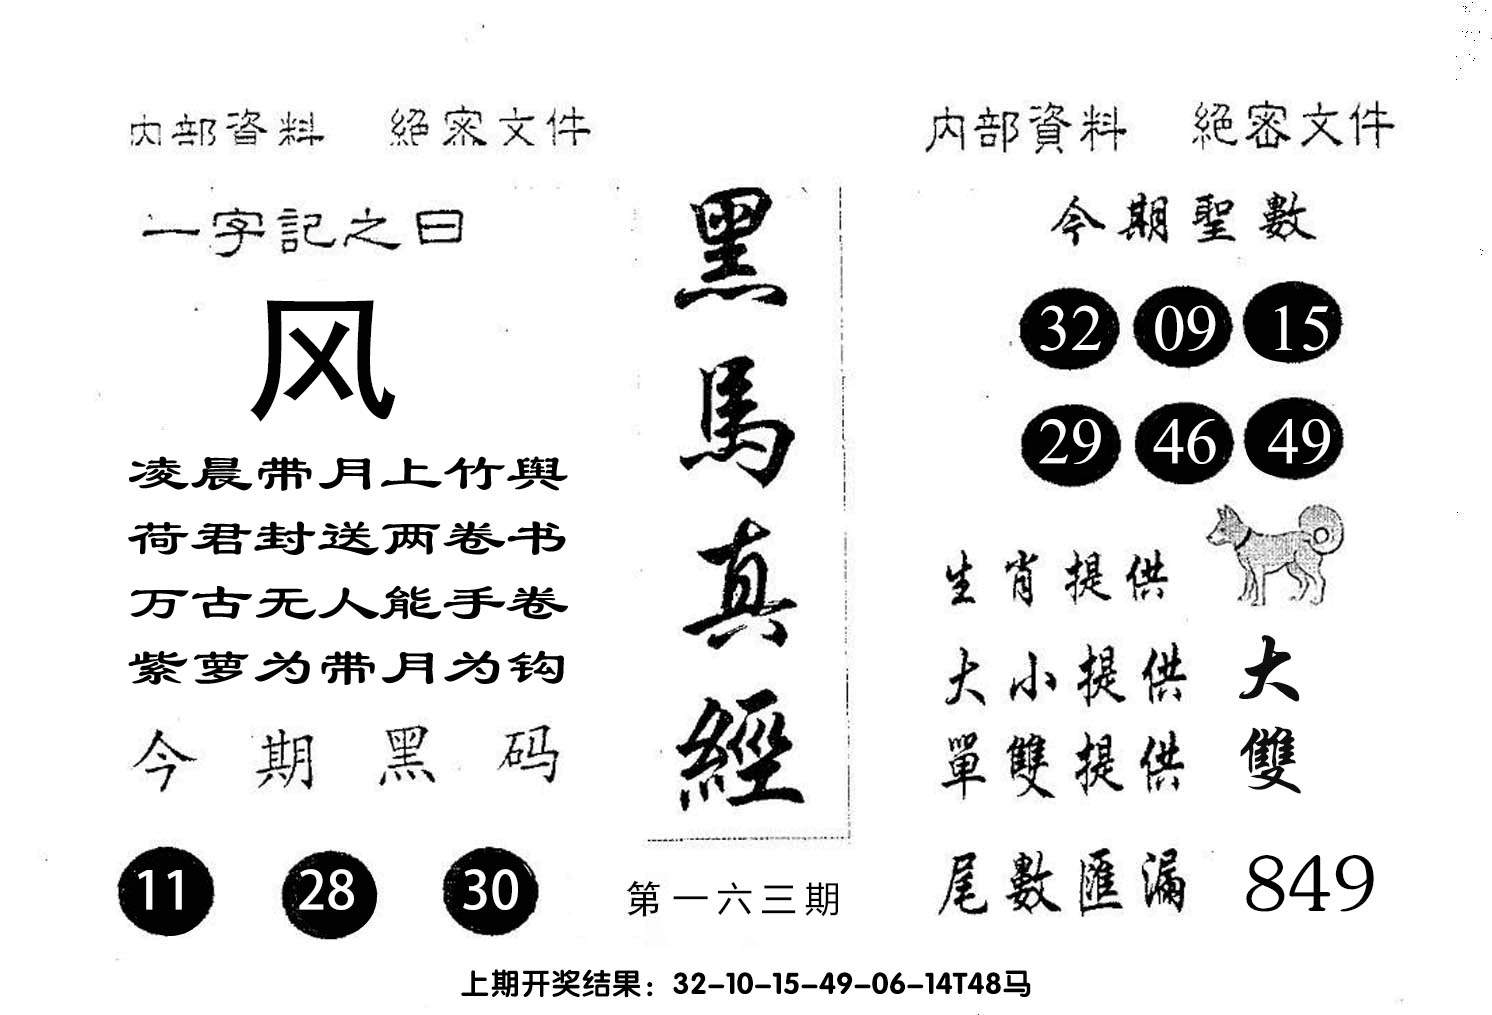 内部資料 絕密文件
一字記之曰
风
凌晨带月上竹舆
荷君封送两卷书
万古无人能手卷
紫萝为带月为钩
今期黑码
11 28 30
黑馬真經
第一六三期
内部資料 絕密文件
今期聖數
32 09 15
29 46 49
生肖提供
大小提供 大
單雙提供 雙
尾數匯漏 849
上期开奖结果：32-10-15-49-06-14T48马